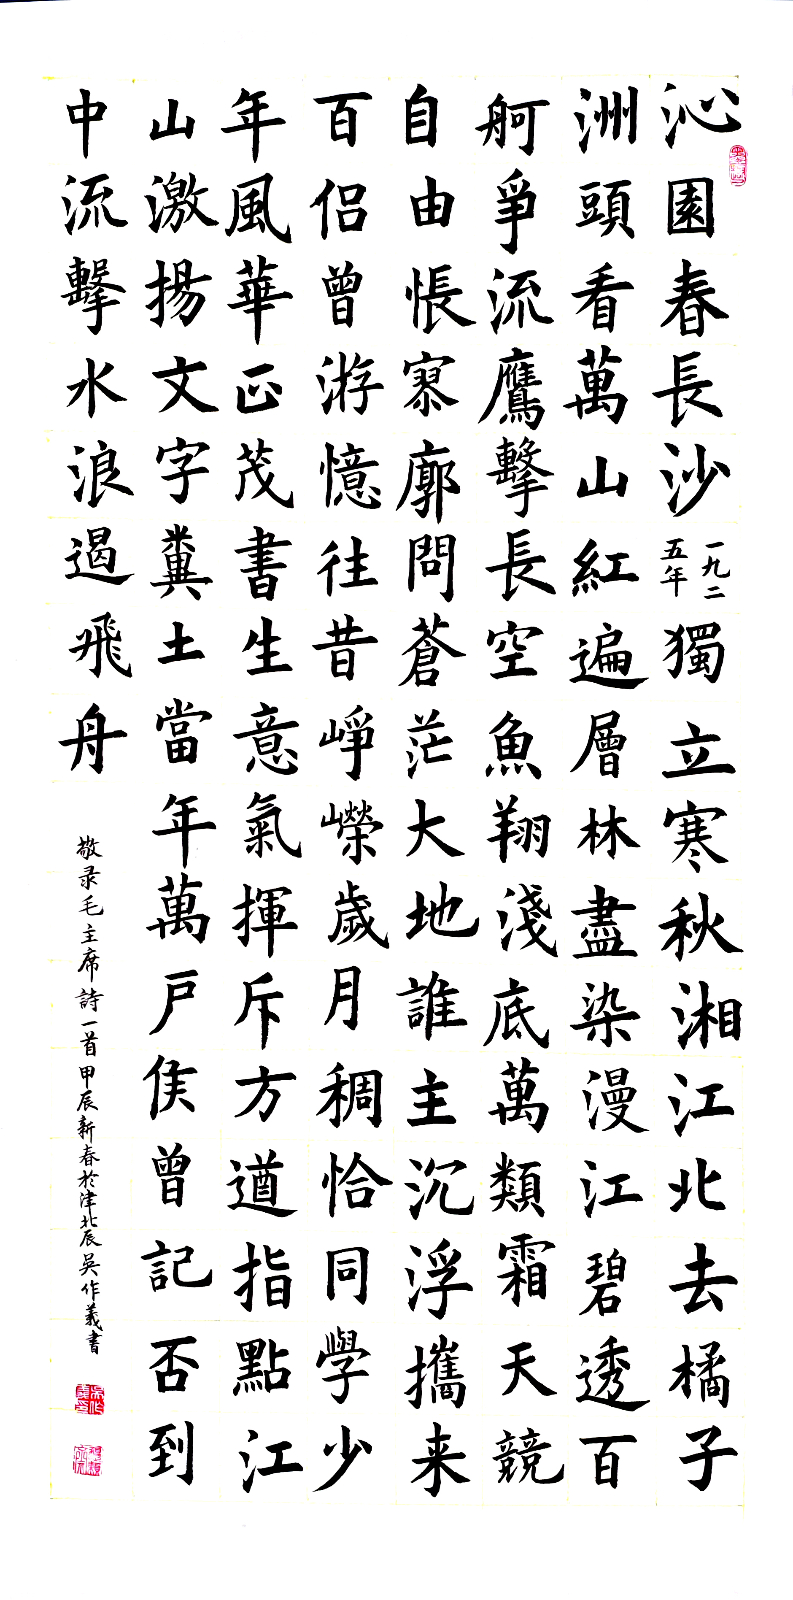 沁園春長沙一九二五年獨立寒秋湘江北去橘子
洲頭看萬山紅遍層林盡染漫江碧透百
舸爭流鷹擊長空魚翔淺底萬類霜天競
自由悵寥廓問蒼茫大地誰主沉浮攜来
百侣曾游憶往昔崢嶸歲月稠恰同學少
年風華正茂書生意氣揮斥方遒指點江
山激揚文字糞土當年萬户侯曾記否到
中流擊水浪遏飛舟
敬录毛主席詩一首甲辰新春於津北辰吳作義書